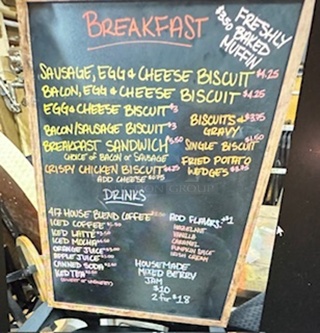 BREAKFAST
$3.50 FRESHLY
BAKED
MUFFIN
SAUSAGE, EGG & CHEESE BISCUIT $4.25
BACON, EGG & CHEESE BISCUIT $4.25
EGG & CHEESE BISCUIT $3
BACON/SAUSAGE BISCUIT $3
BREAKFAST SANDWICH $5.50
CHOICE OF BACON OR SAUSAGE
CRISPY CHICKEN BISCUIT
ADD CHEESE
BISCUITS & $3.75
GRAVY
SINGLE BISCUIT $1.50
FRIED POTATO
WEDGES
DRINKS
417 HOUSE BLEND COFFEE
ICED COFFEE
ICED LATTE
ICED MOCHA
ORANGE JUICE
APPLE JUICE
CANNED SODA
ICED TEA
ADD FLAVORS: $1
HAZELNUT
VANILLA
CARAMEL
PUMPKIN SPICE
IRISH CREAM
HOUSEMADE
MIXED BERRY
JAM
$10
2 for $18